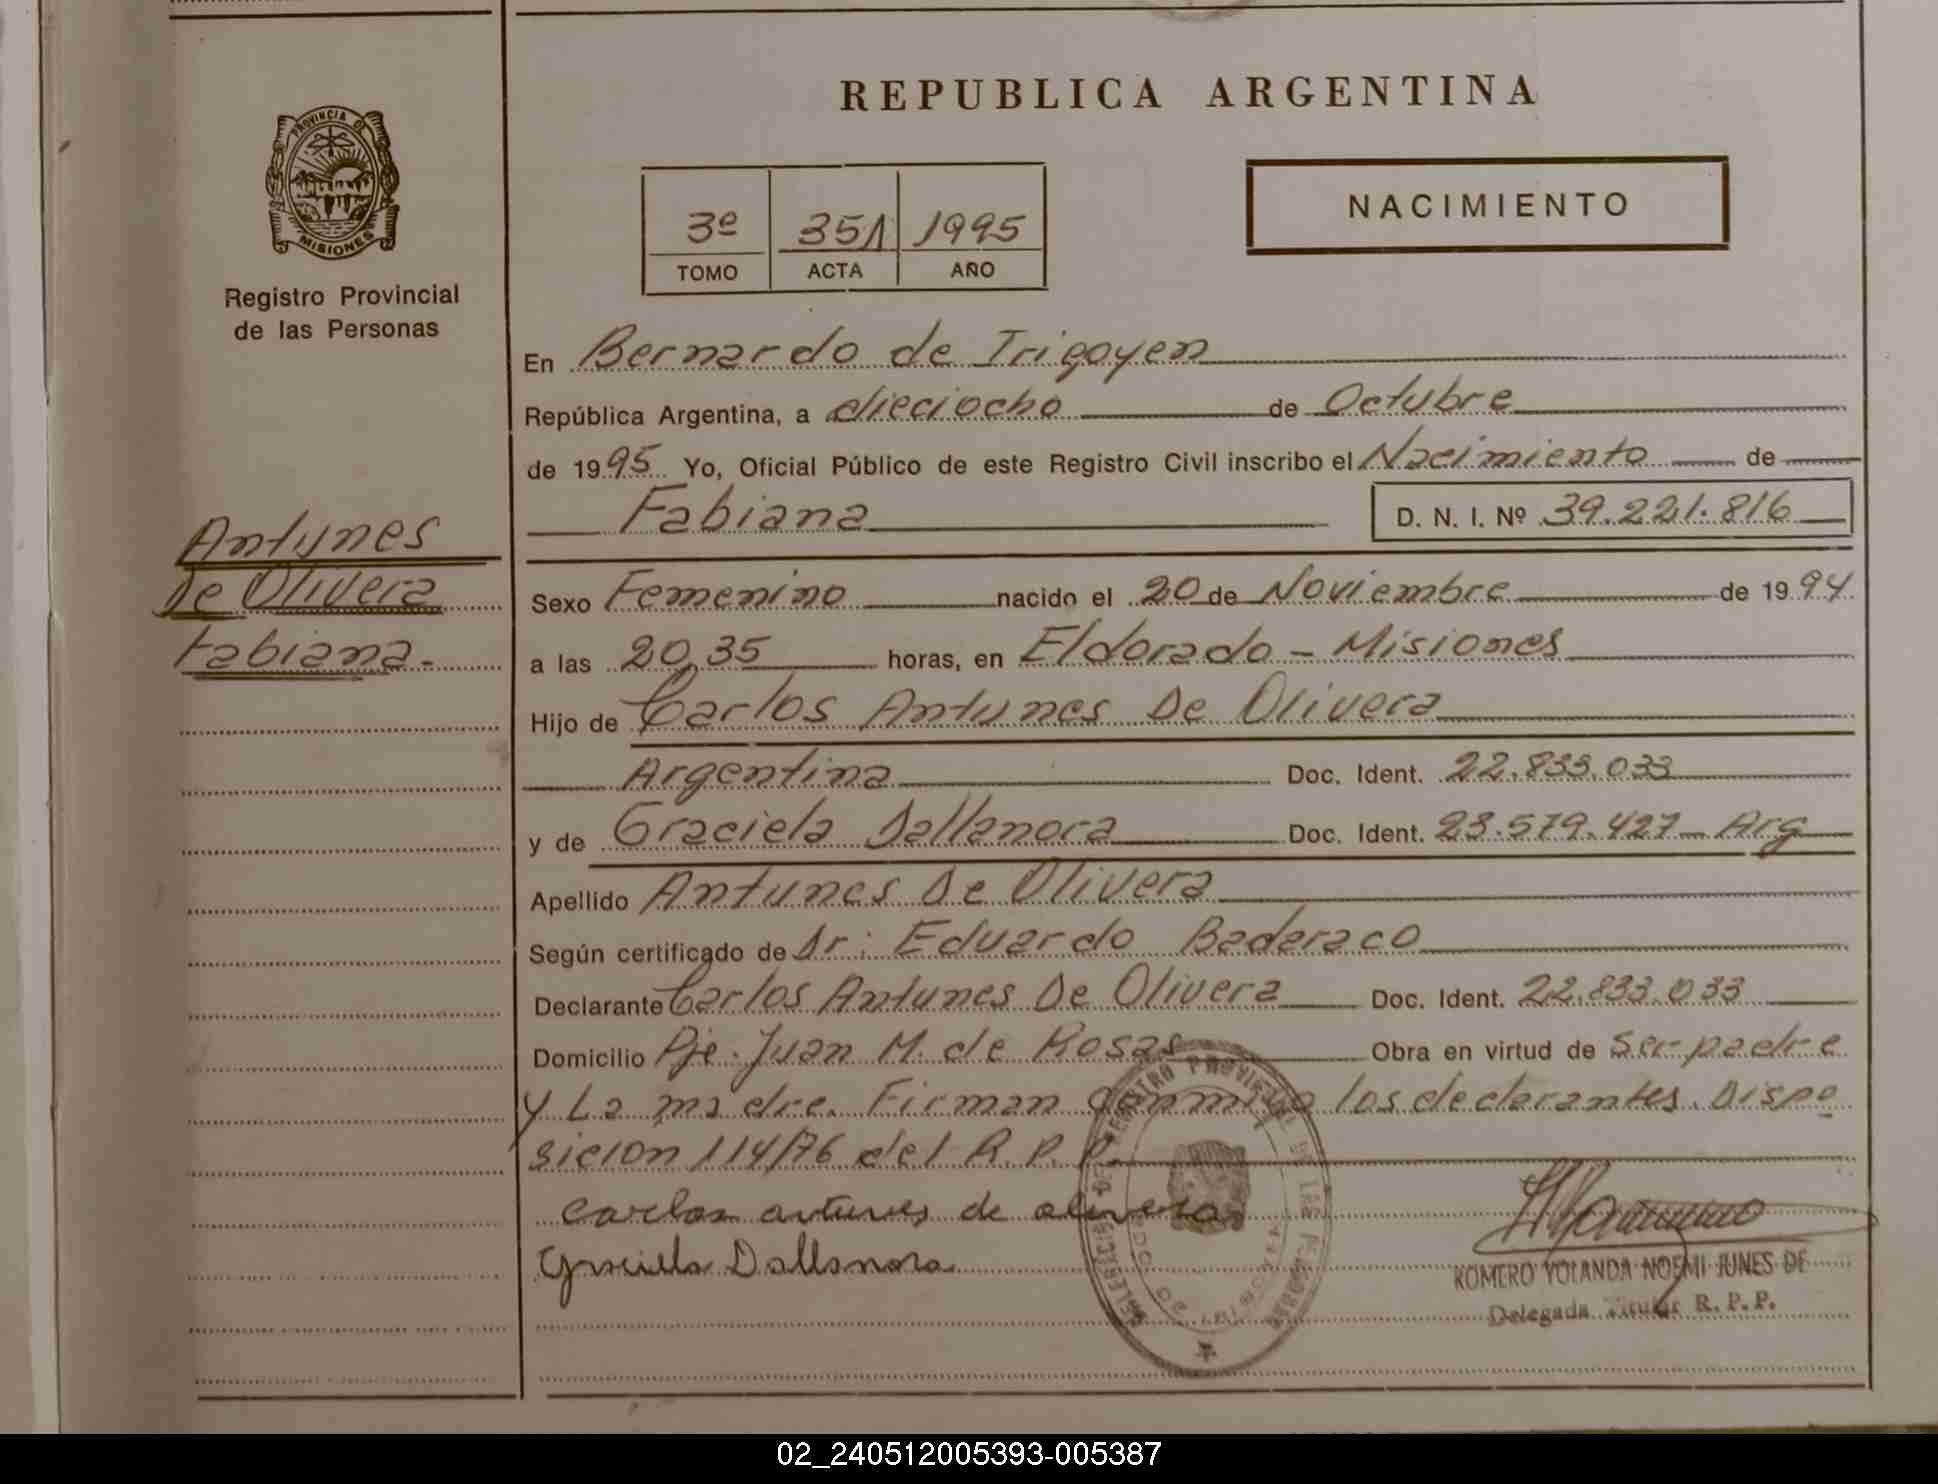 PROVINCIA DE
MISIONES
Registro Provincial
de las Personas
Antunes
De Olivera
Fabiana.
REPUBLICA ARGENTINA
3º 351 1995
TOMO ACTA AÑO
NACIMIENTO
En Bernardo de Irigoyen
República Argentina, a dieciocho de Octubre
de 1995 Yo, Oficial Público de este Registro Civil inscribo el Nacimiento de
Fabiana D. N. I. Nº 39.221.816
Sexo Femenino nacido el 20 de Noviembre de 1994.
a las 20,35 horas, en Eldorado - Misiones
Hijo de Carlos Antunes De Olivera
Argentina Doc. Ident. 22.833.033
y de Graciela Dallanora Doc. Ident. 23.579.427 Arg
Apellido Antunes De Olivera
Según certificado de Dr: Eduardo Badaraco
Declarante Carlos Antunes De Olivera Doc. Ident. 22.833.033
Domicilio Pje. Juan M. de Rosas Obra en virtud de Ser padre
y La madre. Firman conmigo los declarantes. Dispo
sición 114/76 del R. P. P.
Carlos antunes de olivera
Graciela Dallanora
ROMERO YOLANDA NOEMI JUNES DE
Delegada Titular R. P. P.
02_240512005393-005387